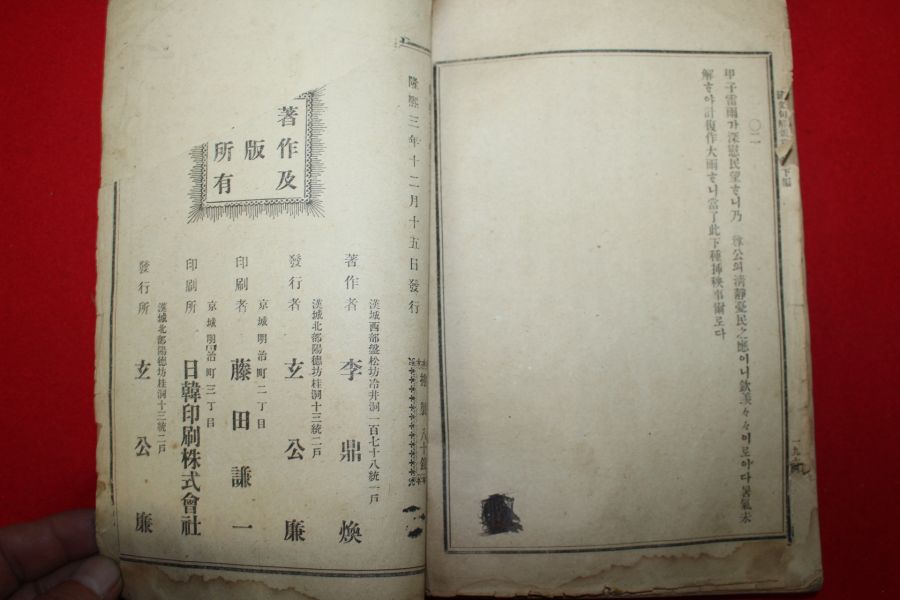 下編
〇二
甲子雷雨가深慰民望ᄒᆞ니乃 尊公의清靜憂民之應이니欽羨々々이로이다暑氣未
解ᄒᆞ야計復作大雨ᄒᆞ니當了此下種揷秧事爾로다
著作及
版
所有
隆熙三年十二月十五日發行
八十錢
著作者
漢城西部盤松坊冷井洞一百七十八統一戶
李鼎煥
發行者
漢城北部陽德坊桂洞十三統二戶
玄公廉
印刷者
京城明治町二丁目
藤田謙一
印刷所
京城明治町三丁目
日韓印刷株式會社
發行所
漢城北部陽德坊桂洞十三統二戶
玄公廉